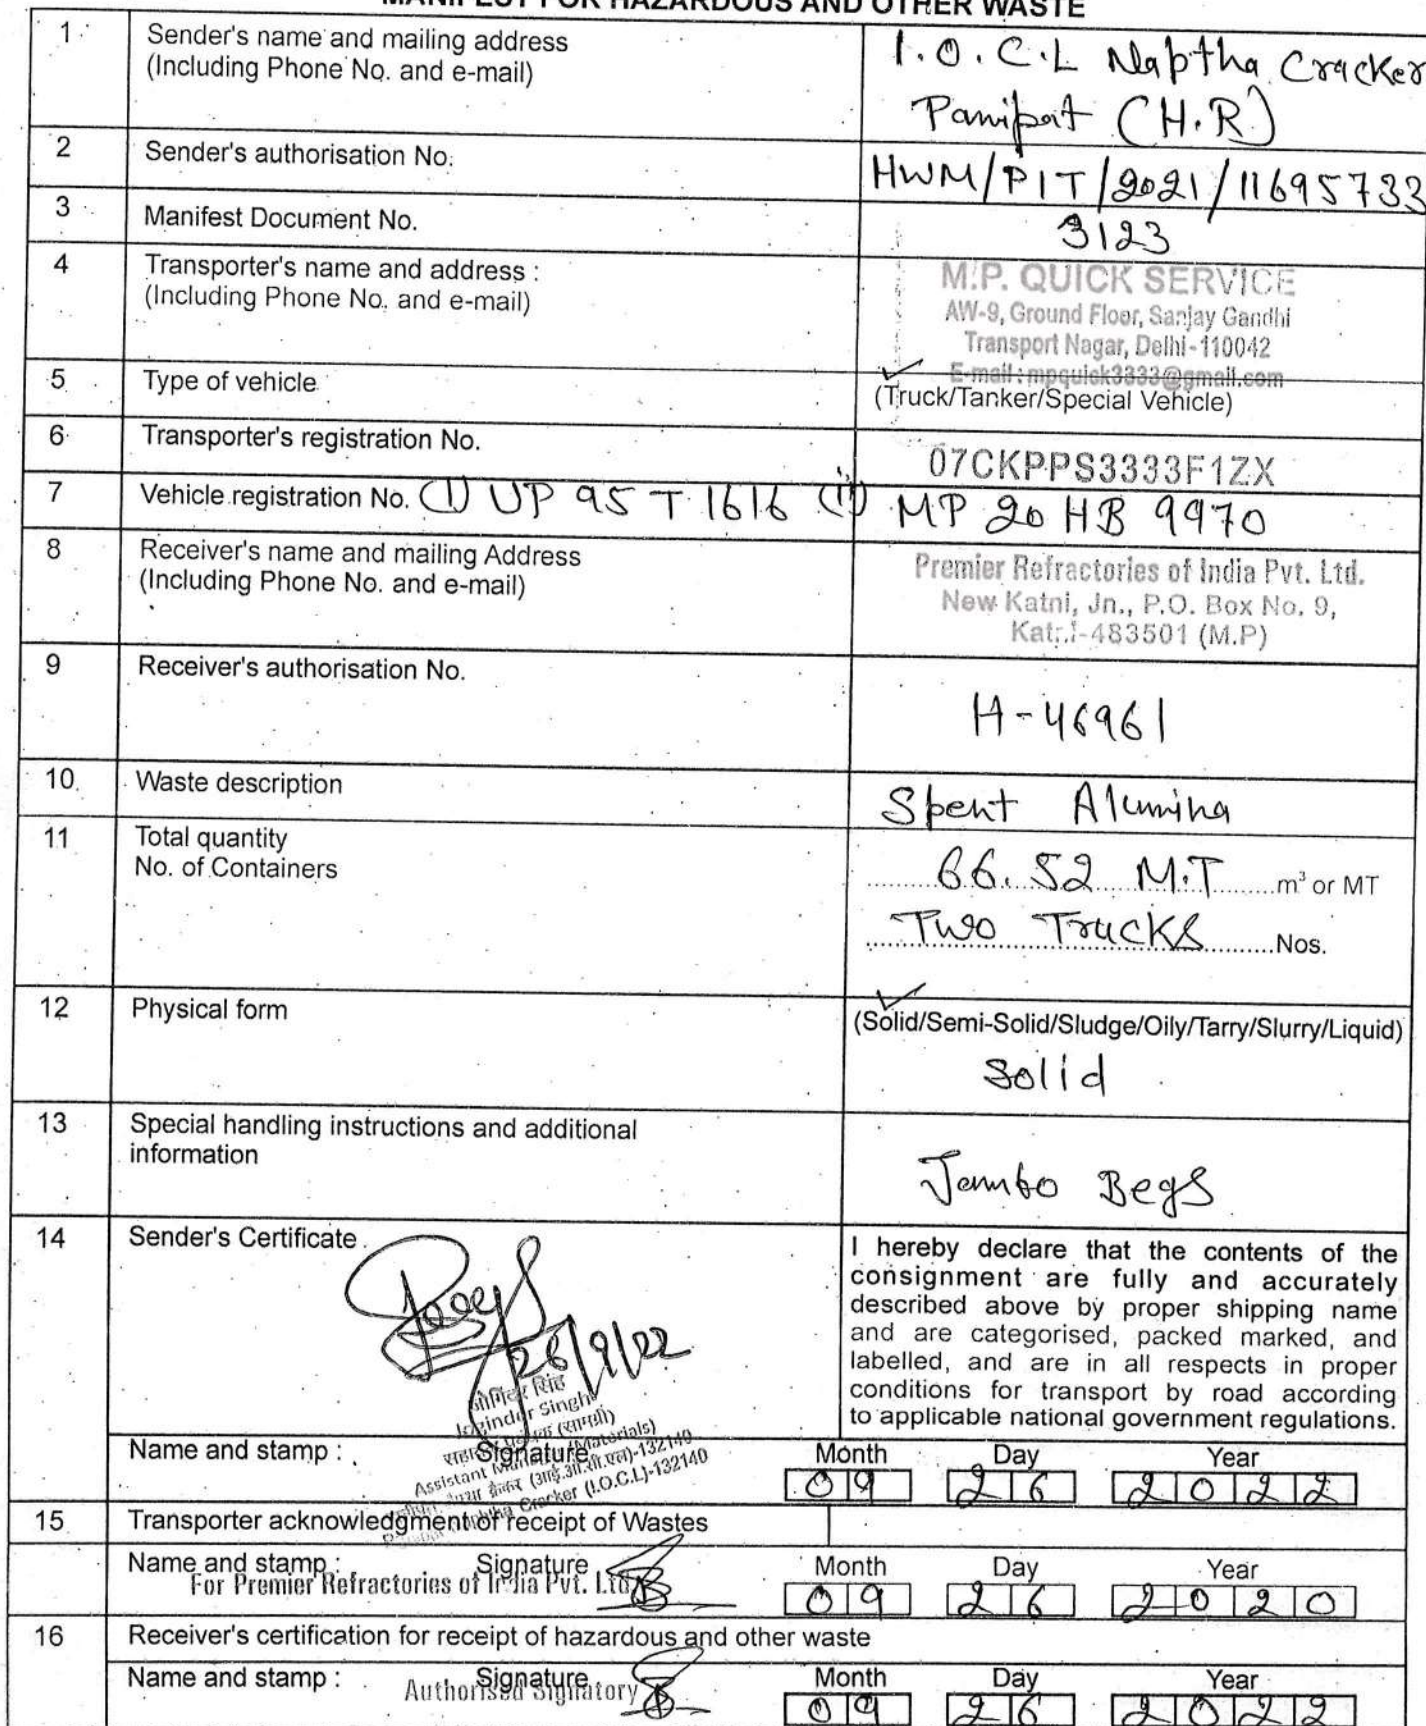 MANIFEST FOR HAZARDOUS AND OTHER WASTE
1 Sender's name and mailing address
(Including Phone No. and e-mail)
I.O.C.L Naptha Cracker
Panipat (H.R)
2 Sender's authorisation No.
HWM/PIT/2021/11695733
3 Manifest Document No.
3123
4 Transporter's name and address :
(Including Phone No. and e-mail)
M.P. QUICK SERVICE
AW-9, Ground Floor, Sanjay Gandhi
Transport Nagar, Delhi-110042
E-mail : mpquick3333@gmail.com
5 Type of vehicle
(Truck/Tanker/Special Vehicle)
6 Transporter's registration No.
07CKPPS3333F1ZX
7 Vehicle registration No. (I) UP 95 T 1616 (ii) MP 20 HB 9970
8 Receiver's name and mailing Address
(Including Phone No. and e-mail)
Premier Refractories of India Pvt. Ltd.
New Katni, Jn., P.O. Box No. 9,
Katni-483501 (M.P)
9 Receiver's authorisation No.
H-46961
10. Waste description
Spent Alumina
11 Total quantity
No. of Containers
66.52 M.T m³ or MT
Two Trucks Nos.
12 Physical form
(Solid/Semi-Solid/Sludge/Oily/Tarry/Slurry/Liquid)
Solid
13 Special handling instructions and additional
information
Jambo Begs
14 Sender's Certificate
I hereby declare that the contents of the
consignment are fully and accurately
described above by proper shipping name
and are categorised, packed marked, and
labelled, and are in all respects in proper
conditions for transport by road according
to applicable national government regulations.
26/9/22
जोगिंदर सिंह
Joginder Singh
(सामग्री)
Assistant Manager (Materials)
क्रैकर (आई.ओ.सी.एल)-132140
Naphtha Cracker (I.O.C.L)-132140
Name and stamp : Signature Month Day Year
09 26 2022
15 Transporter acknowledgment of receipt of Wastes
Name and stamp : Signature Month Day Year
For Premier Refractories of India Pvt. Ltd.
09 26 2020
16 Receiver's certification for receipt of hazardous and other waste
Name and stamp : Signature Month Day Year
Authorised Signatory
09 26 2022